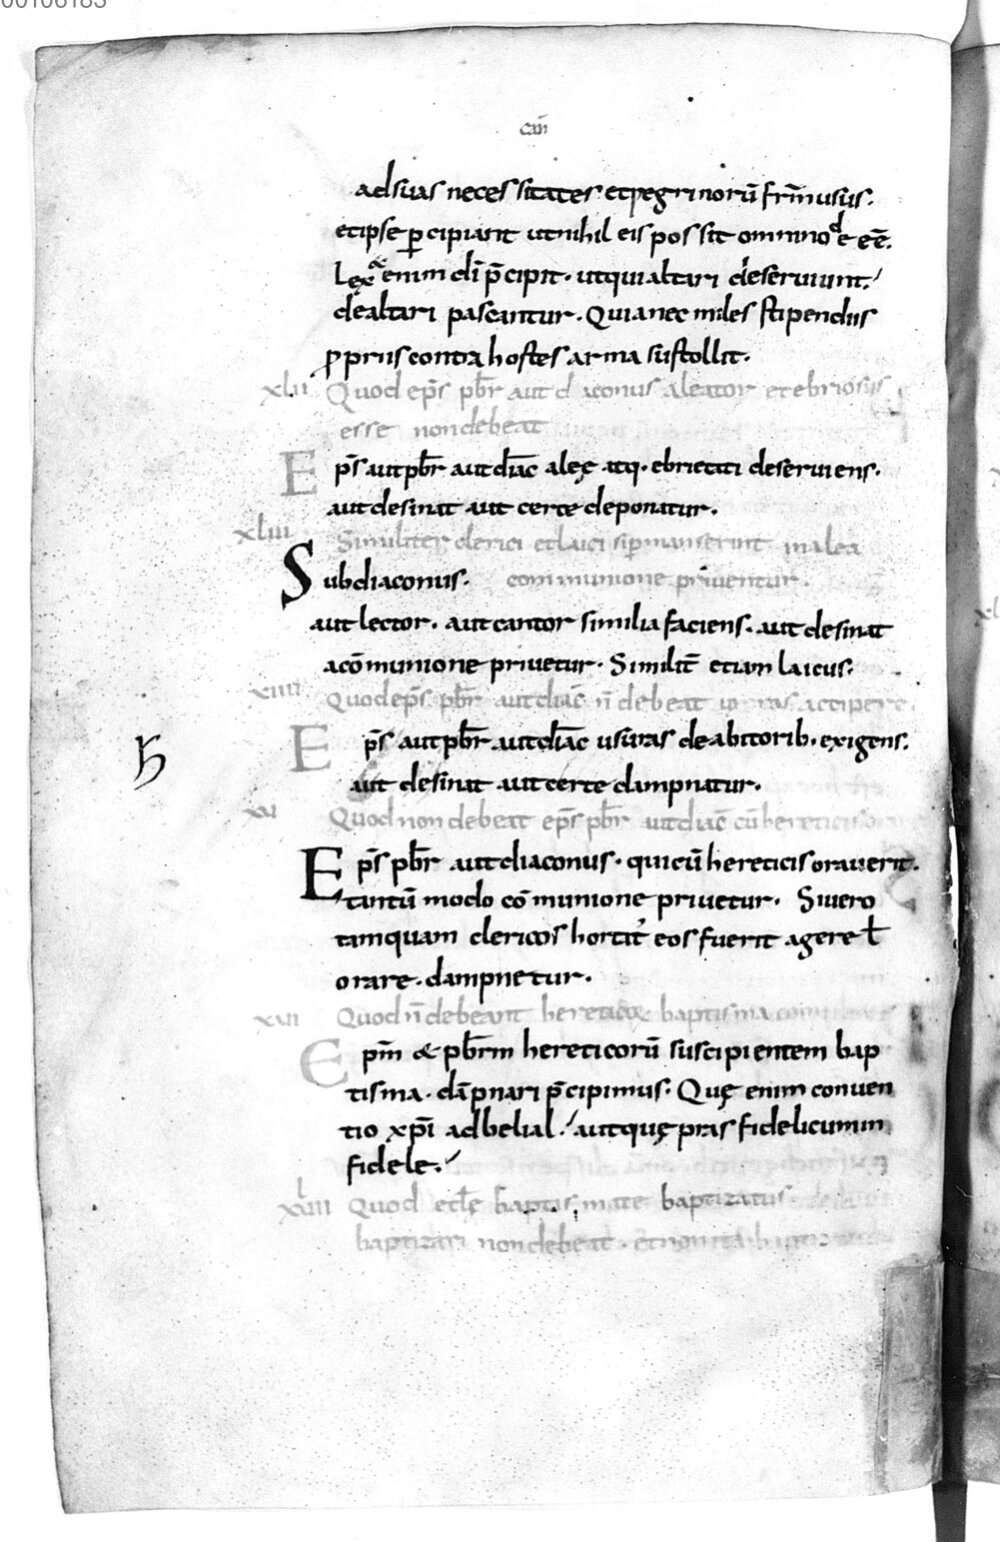 00106183
can̄
adsuas necessitates et pegrinorū fr̄m usus.
etipse ꝑcipiant ut nihil eis possit omnino deēē.
Lex enim dī p̄cipit. ut qui altari deseruiunt.
de altari pascantur. Quia nec miles stipendiis
ꝓpriis contra hostes arma sustollit.
xlii Quod ep̄s pb̄r aut diaconus aleator et ebriosus
esse non debeat
Ep̄s aut pb̄r aut diac̄ aleę atq. ebrietati deseruiens.
aut desinat aut certe deponatur.
xliii Similiter clerici et laici si ꝑmanserint in alea
communione priuentur.
Subdiaconus.
aut lector. aut cantor similia faciens. aut desinat
a cōmunione priuetur. Similit̄ etiam laicus.
xliiii Quod ep̄s pb̄r aut diac̄ n̄ debeat usuras accipere.
Ep̄s aut pb̄r aut diac̄ usuras de abitorib. exigens.
aut desinat aut certe dampnatur.
Quod non debeat ep̄s pb̄r aut diac̄ cū hereticis
Ep̄s pb̄r aut diaconus. qui cū hereticis orauerit.
tantū modo cōmunione priuetur. Si uero
tamquam clericos hortat' eos fuerit agere ł
orare. dampnetur.
Quod n̄ debeant hereticorum baptisma
Ep̄m & pb̄rm hereticorū suscipientem bap
tisma. dāpnari p̄cipimus. Quę enim conuen
tio xp̄i ad belial. aut quę pars fideli cum in
fidele.
Quod eccl̄ę baptismate baptizatus
baptizari non debeat. et non
ђ